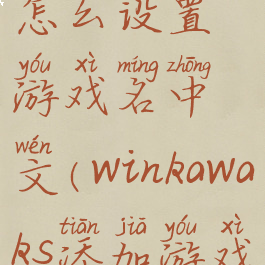 怎么设置
yóu xì míng zhōng
游戏名中
wén
文(winkawa
tiān jiā yóu xì
ks添加游戏